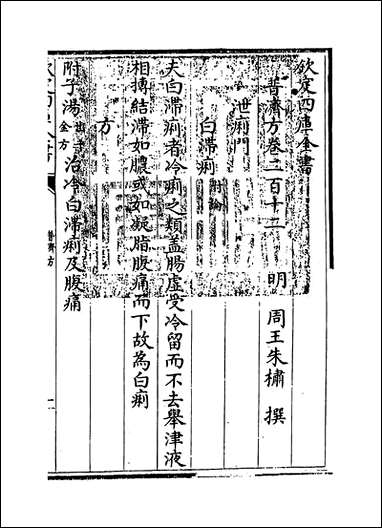 欽定四庫全書
普濟方卷二百十二
明 周王朱橚 撰
泄痢門
白滯痢附論
夫白滯痢者冷痢之類盖腸虚受冷留而不去舉津液
相搏結滯如膿或如凝脂腹痛而下故為白痢
方
附子湯出千金方治冷白滯痢及腹痛
普濟方